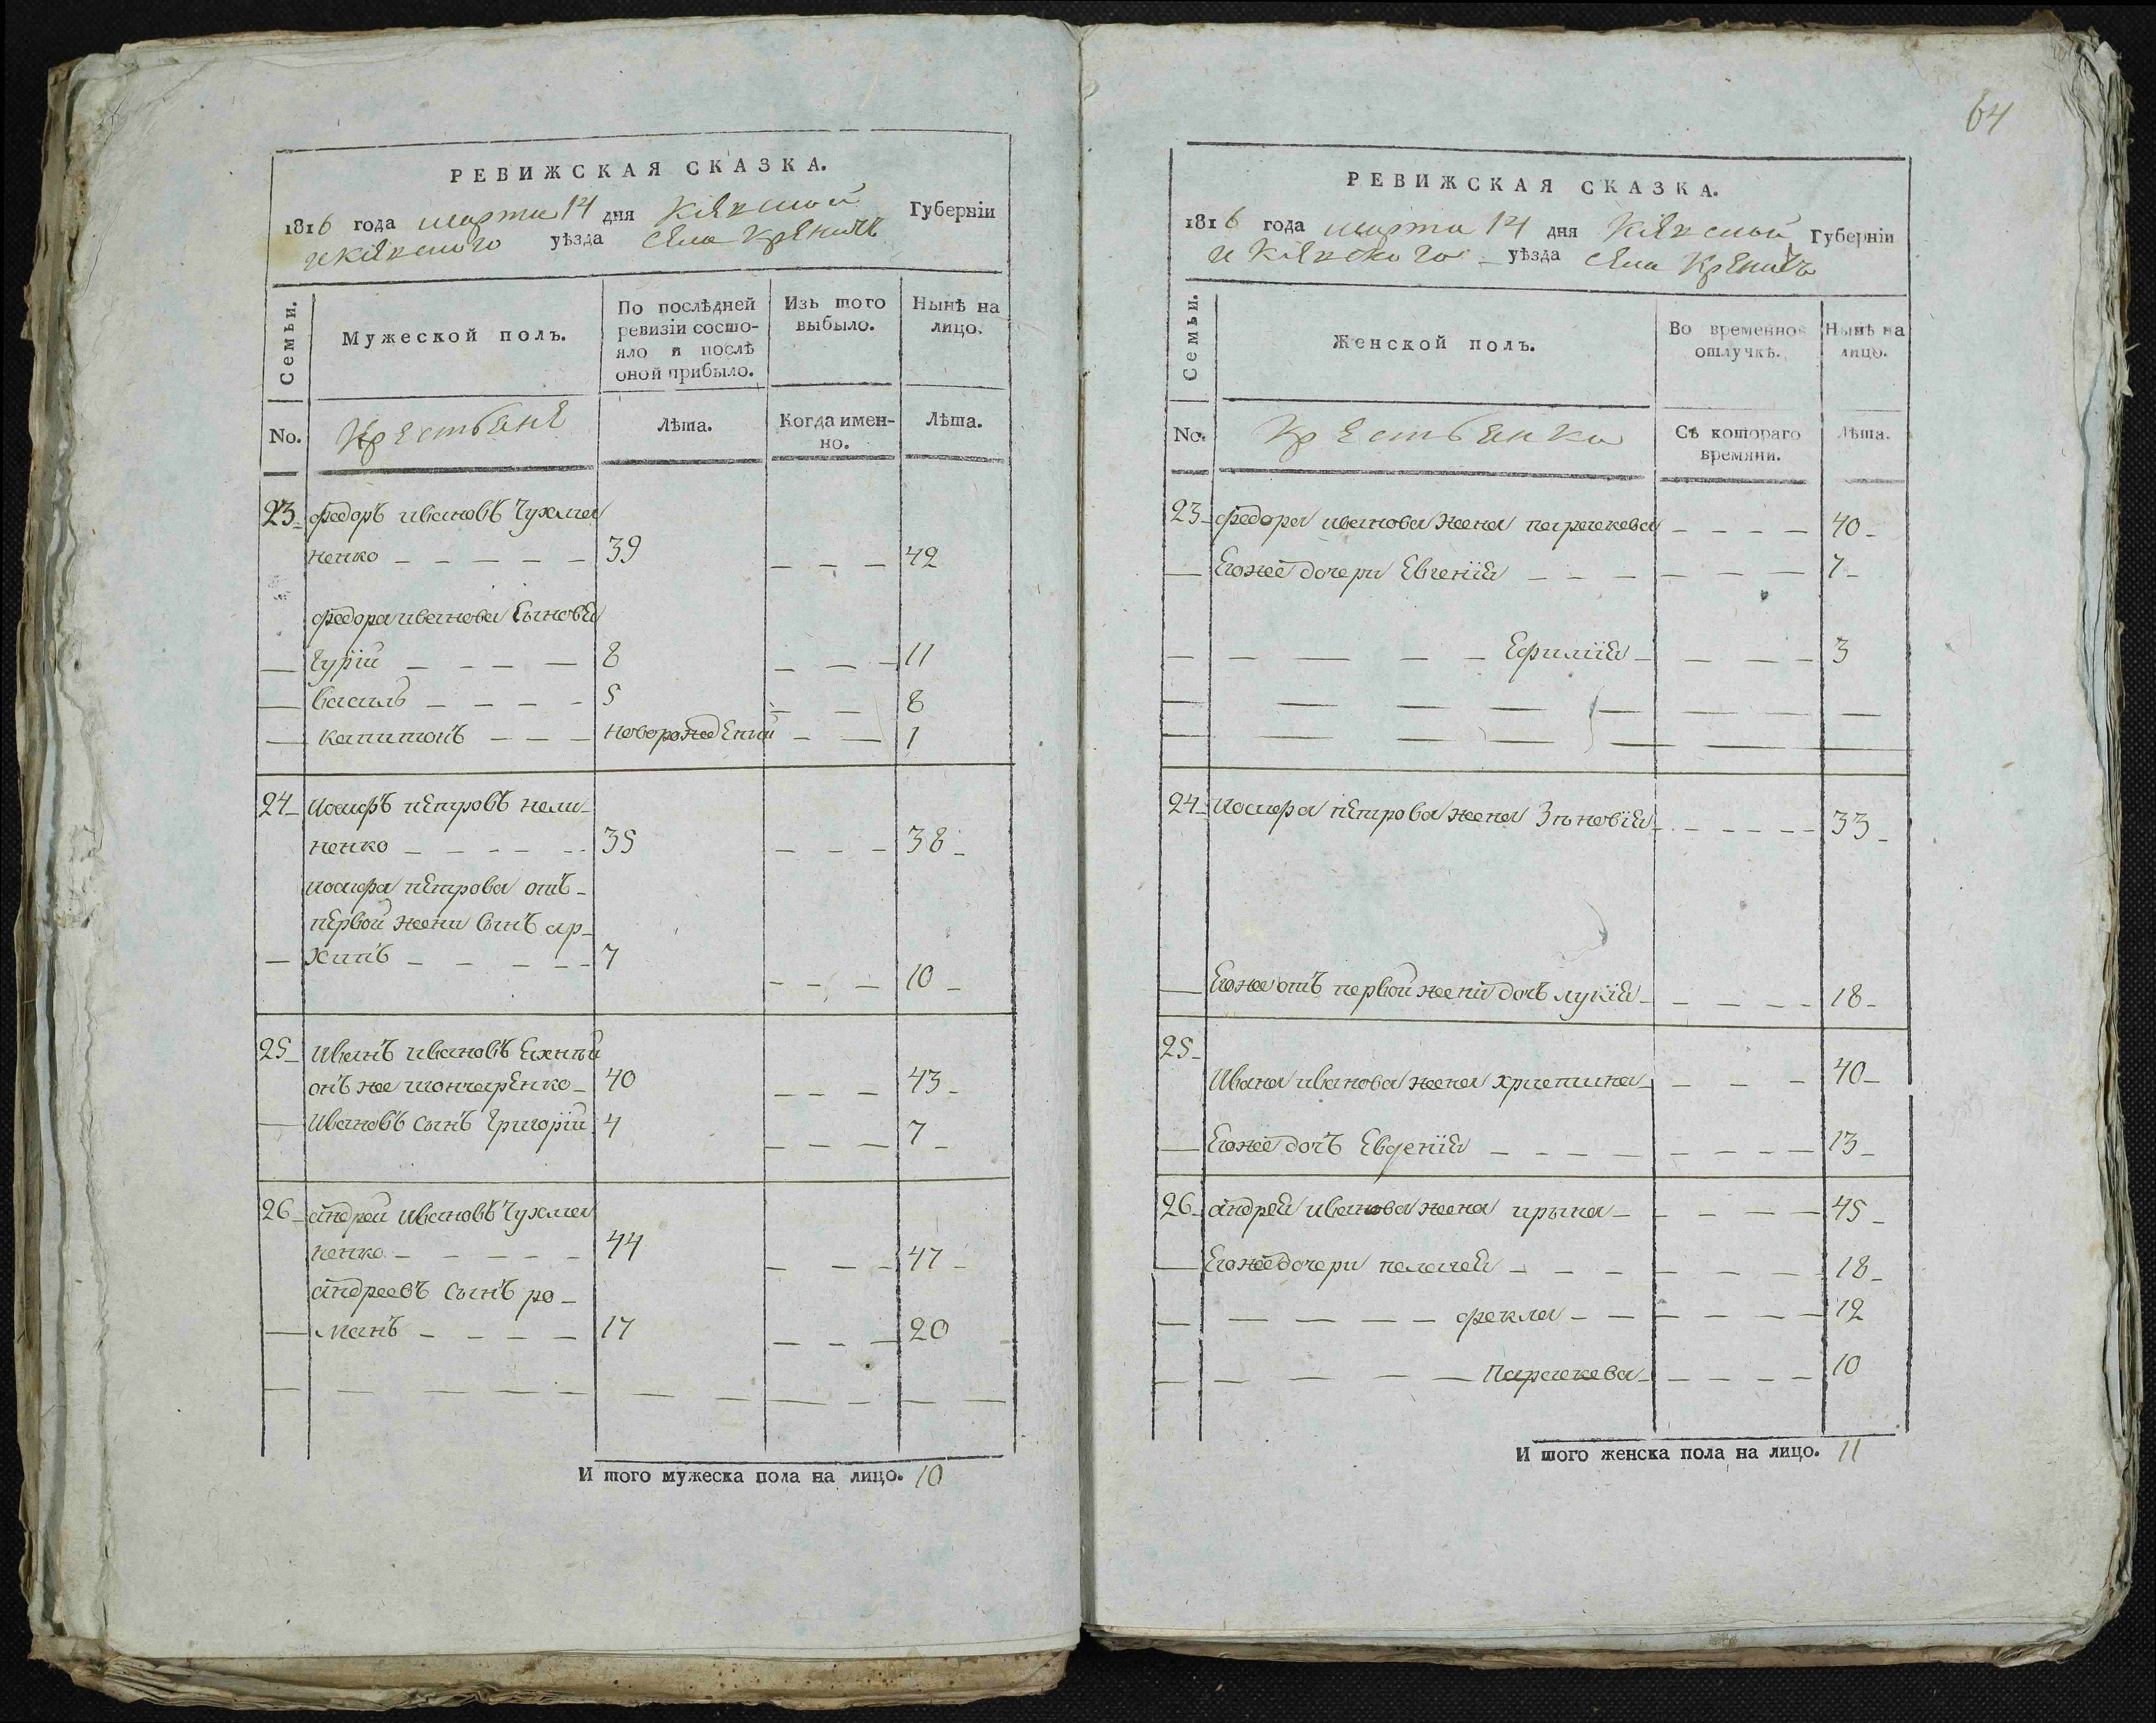 РЕВИЖСКАЯ СКАЗКА.
1816 года марта 14 дня Кіевской Губерніи
и Кіевского уѣзда села Креничъ
Семьи.
Мужеской полъ.
По послѣдней ревизіи состо-
яло и послѣ оной прибыло.
Изъ того выбыло.
Нынѣ на лицо.
No.
Крестьяне
Лѣта.
Когда имен-
но.
Лѣта.
23 федоръ ивановъ Чухма
ненко 39 42
федора иванова Сыновья
Гурій 8 11
василь 5 8
капитонъ новорожденній 1
24 иосифъ петровъ нели
ненко 35 38
иосифа петрова отъ
первой жени сынъ ар
хипъ 7 10
25 иванъ ивановъ
онъ же гончаренко 40 43
ивановъ сынъ Григорій 4 7
26 андрей ивановъ Чухма
ненко 44 47
андреевъ сынъ ро
манъ 17 20
И того мужеска пола на лицо. 10
64
РЕВИЖСКАЯ СКАЗКА.
1816 года марта 14 дня Кіевской Губерніи
и Кіевского уѣзда села Креничъ
Семьи.
Женской полъ.
Во временной отлучкѣ.
Нынѣ на лицо.
No.
Крестьянки
Съ котораго времяни.
Лѣта.
23 федора иванова жена параскева 40
Егоже дочери Евгения 7
Ефимія 3
24 иосифа петрова жена Зѣновія 33
Егоже отъ первой жени дочъ лукія 18
25
ивана иванова жена християна 40
Егоже дочъ Евденія 13
26 андрея иванова жена ирына 45
Егоже дочери пелагея 18
фекла 12
Параскева 10
И того женска пола на лицо. 11